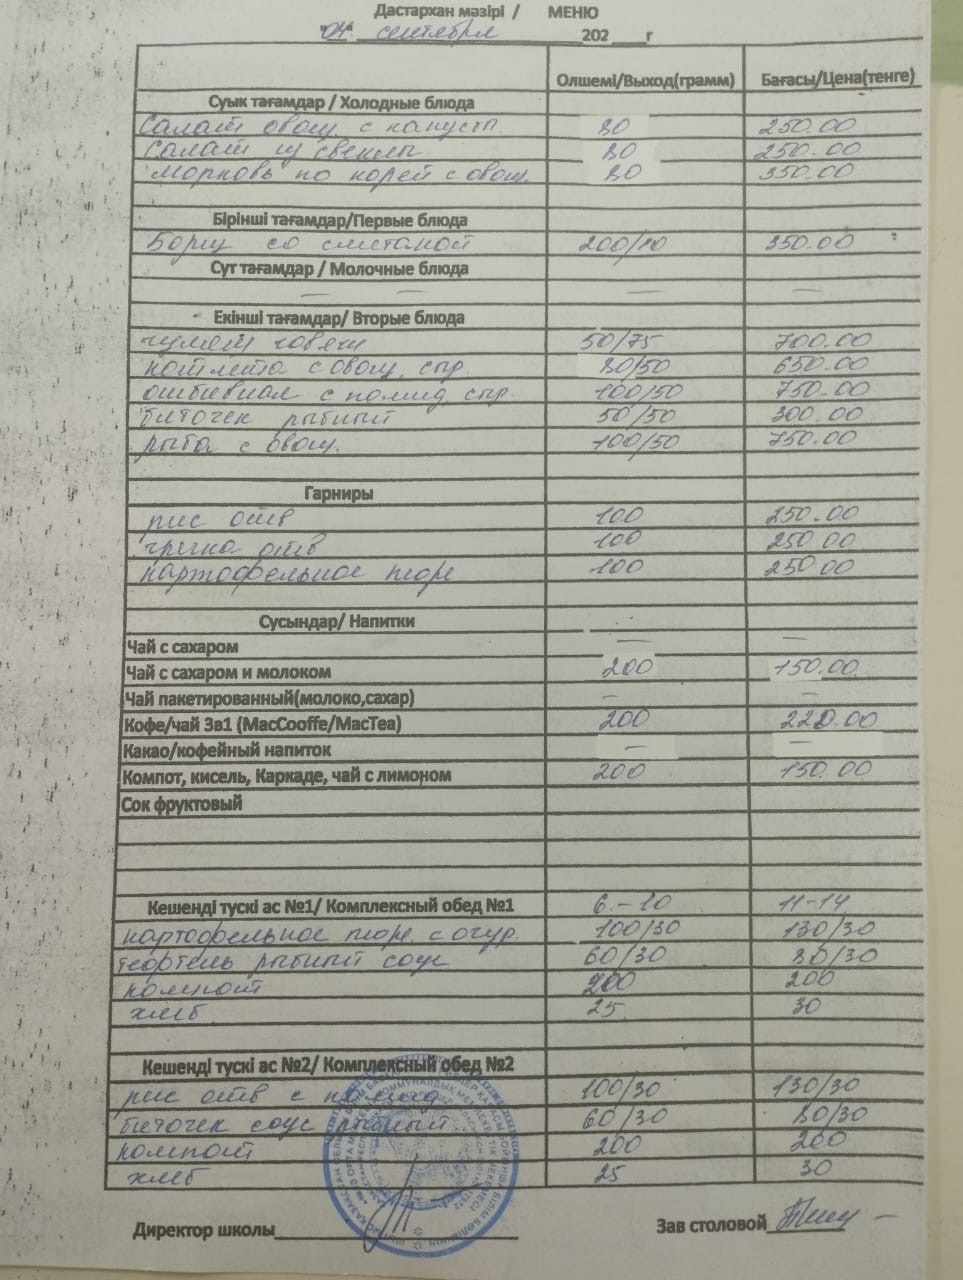 Дастархан мәзірі / МЕНЮ
"04" сентября 202 г
Олшемі/Выход(грамм) Бағасы/Цена(тенге)
Суык тағамдар / Холодные блюда
Салат овощ с капусты. 80 250.00
Салат из свеклы 80 250.00
Морковь по корей с овощ. 80 350.00
Бірінші тағамдар/Первые блюда
Борщ со сметаной 200/10 350.00
Сут тағамдар / Молочные блюда
— — — —
Екінші тағамдар/ Вторые блюда
гуляш говяж 50/75 700.00
котлета с овощ. сыр. 80/50 650.00
отбивная с помид, сыр. 100/50 750.00
биточек рыбный 50/50 300.00
рыба с овощ. 100/50 750.00
Гарниры
рис отв 100 250.00
гречка отв 100 250.00
картофельное пюре 100 250.00
Сусындар/ Напитки
Чай с сахаром — —
Чай с сахаром и молоком 200 150.00
Чай пакетированный(молоко,сахар) — —
Кофе/чай 3в1 (MacCooffe/MacTea) 200 220.00
Какао/кофейный напиток — —
Компот, кисель, Каркаде, чай с лимоном 200 150.00
Сок фруктовый
Кешенді тускі ас №1/ Комплексный обед №1 6.-10 11-14
картофельное пюре. с огур. 100/30 130/30
тефтель рыбный соус 60/30 80/30
компот 200 200
хлеб 25 30
Кешенді тускі ас №2/ Комплексный обед №2
рис отв с 100/30 130/30
биточек соус рыбный 60/30 80/30
компот 200 200
хлеб 25 30
Директор школы Зав столовой